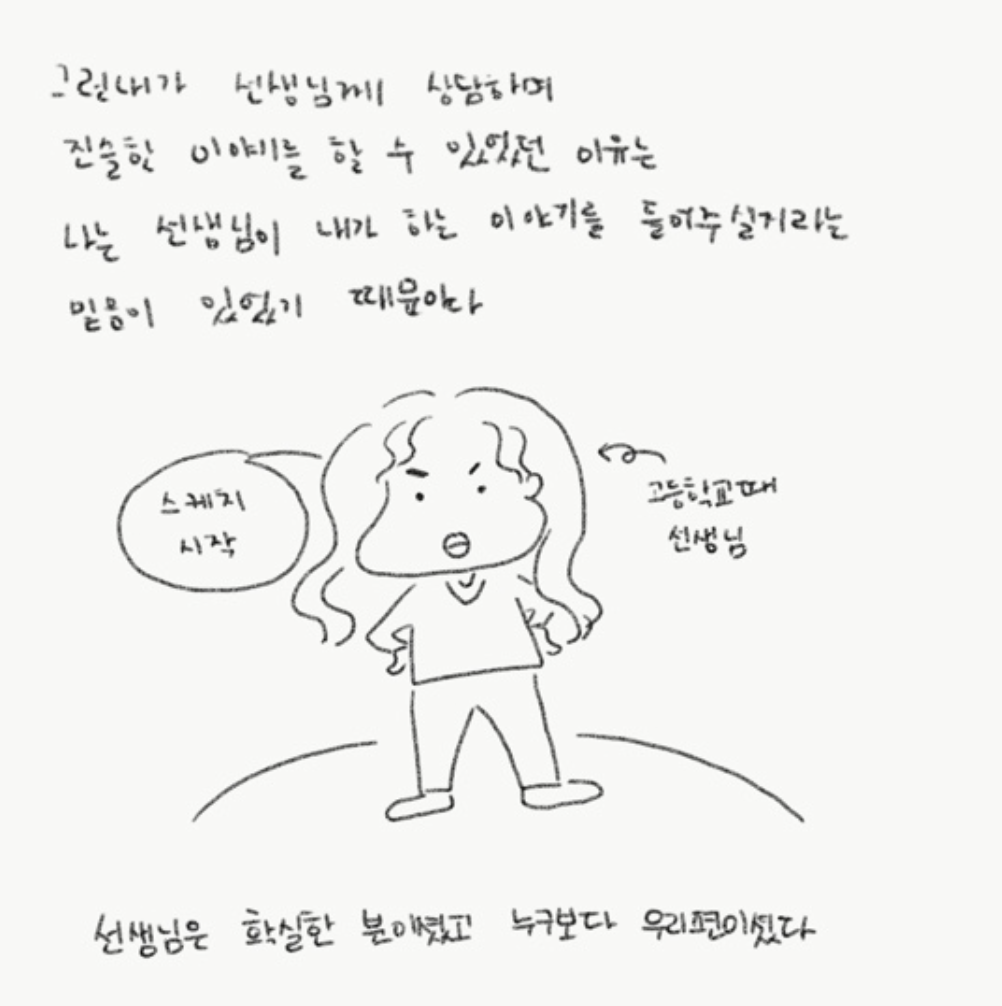 그런내가 선생님께 상담하며
진솔한 이야기를 할 수 있었던 이유는
나는 선생님이 내가 하는 이야기를 들어주실거라는
믿음이 있었기 때문이다
스케치
시작
고등학교때
선생님
선생님은 확실한 분이셨고 누구보다 우리편이셨다